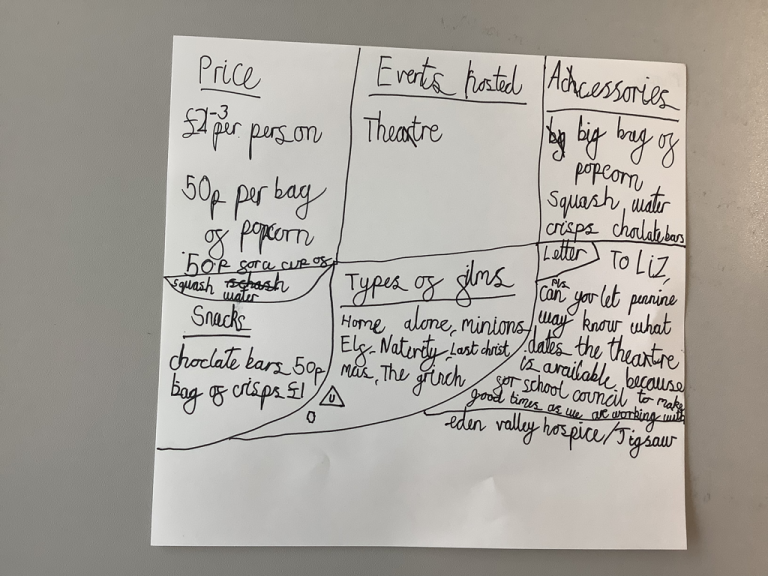 Price
£2-3 per person
50p per bag
of popcorn
50p for a cup of
squash
water
Snacks
choclate bars 50p
bag of crisps £1
Events hosted
Theatre
Types of films
Home alone, minions
Elf, Naterity, Last christ
mas, The grinch
U
Accessories
big bag of
popcorn
squash, water
crisps choclate bars
Letter
To Liz,
Pls
can you let pennine
way know what
dates the theartre
is available because
for school council to make
good times as we are working with
eden valley hospice/Jigsaw